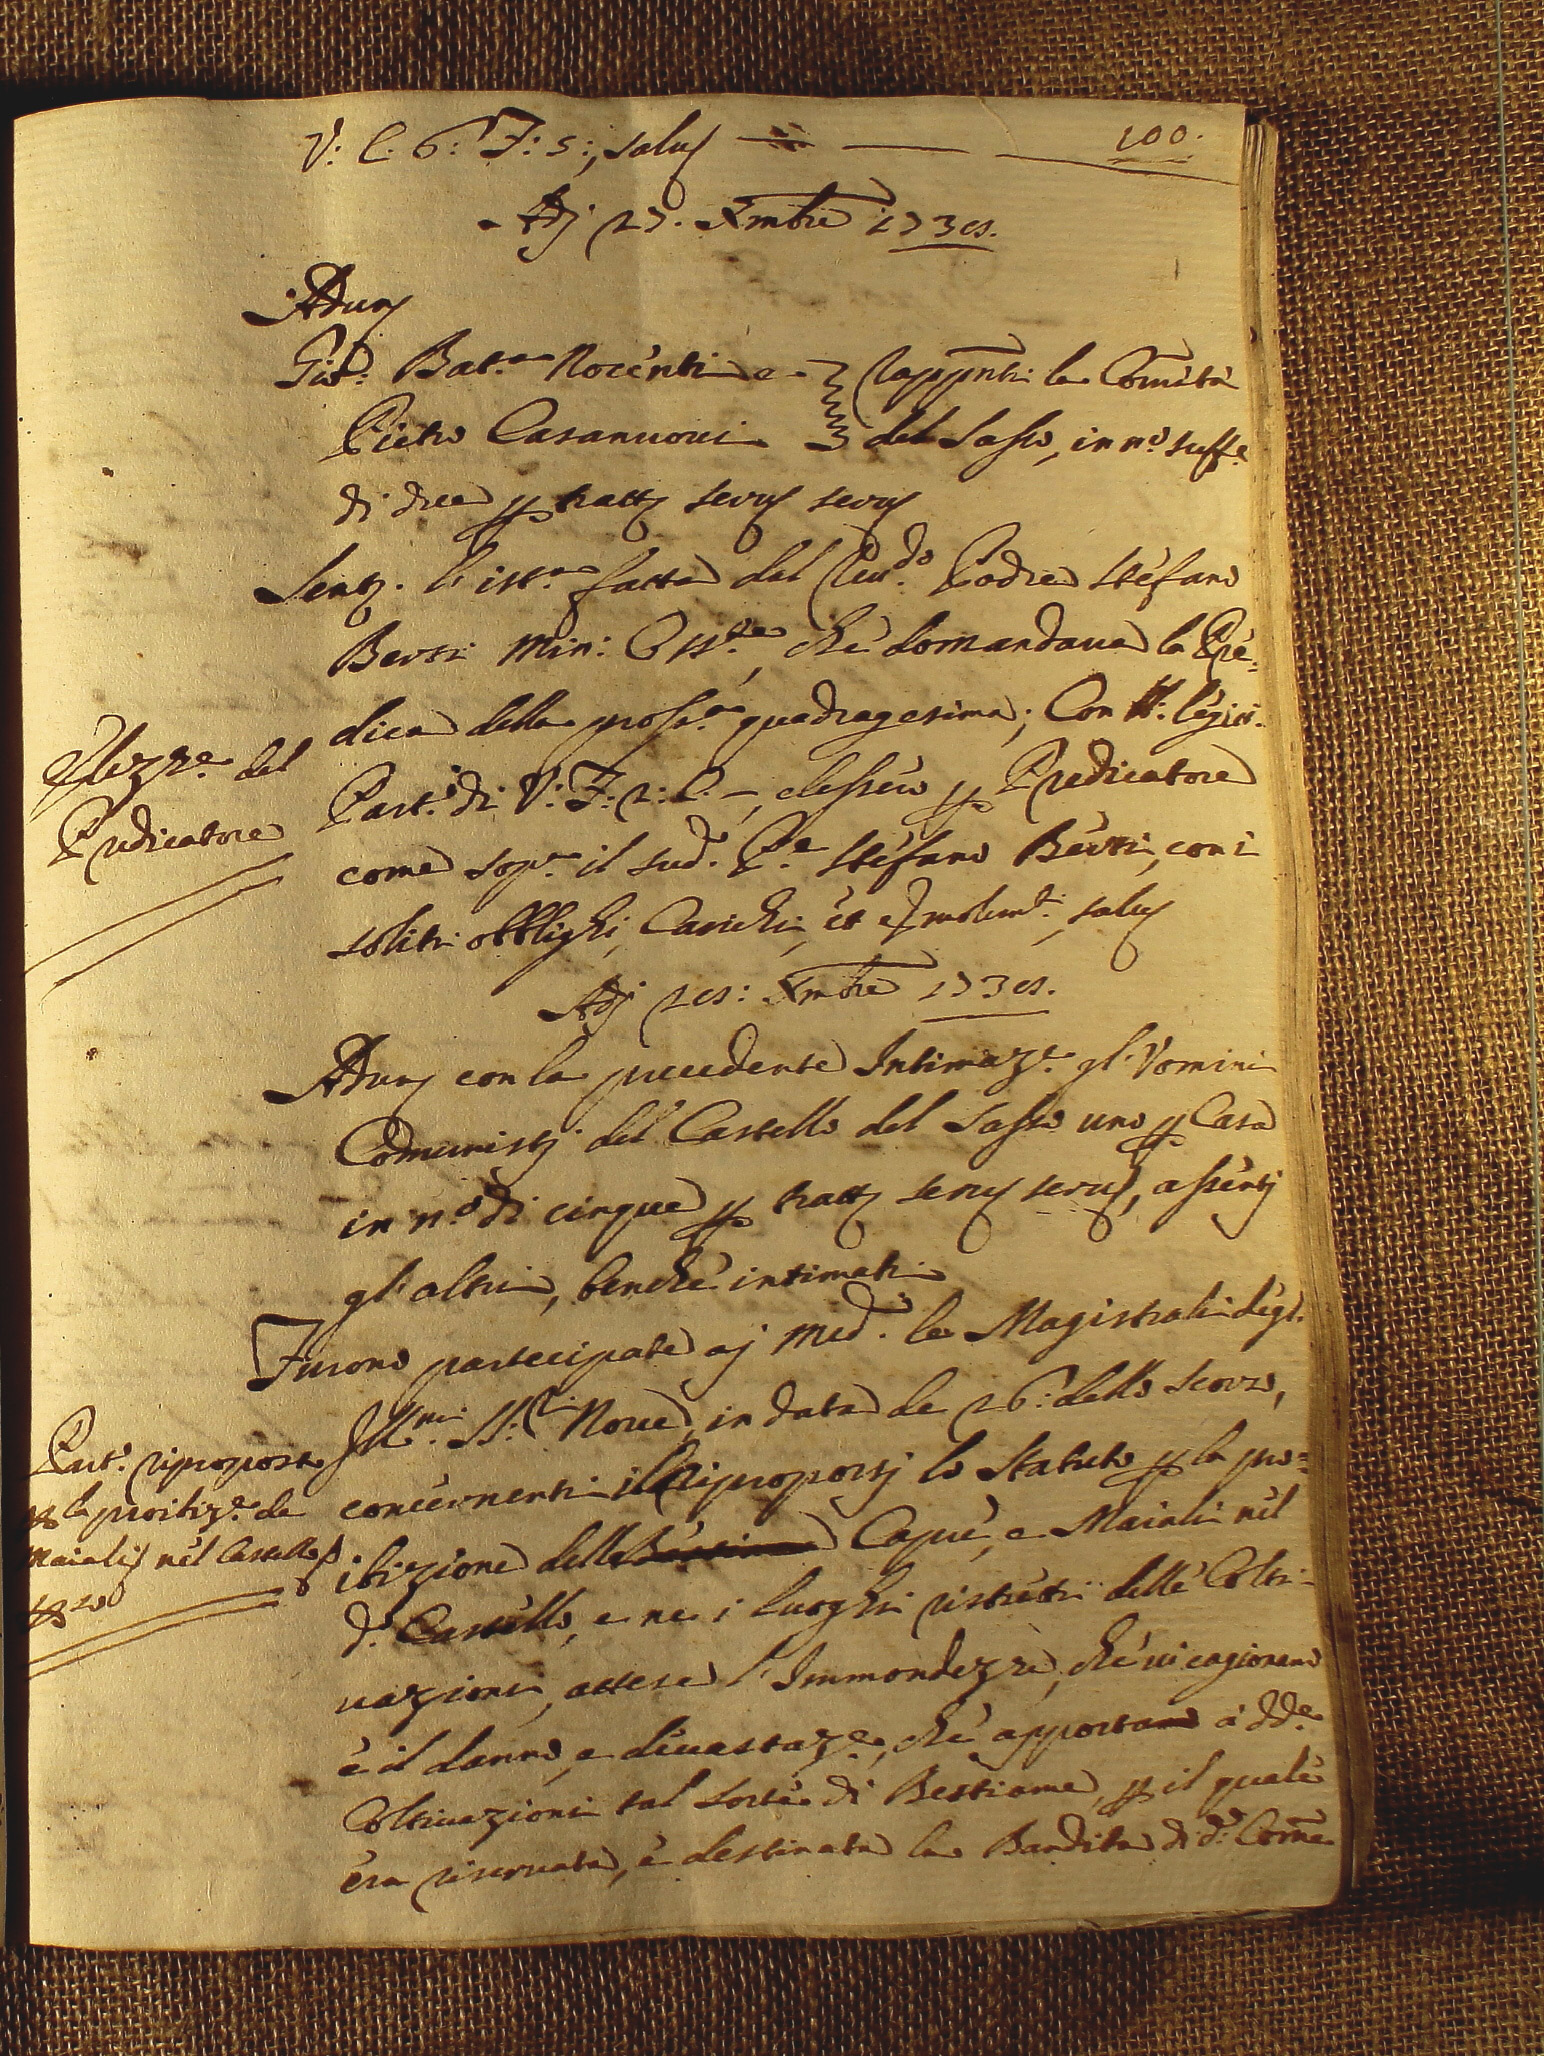 V: C. 6: F: 5:, salus
100.
Adj 27. Xmbre 173es.
Aduns
Gio: Bat.a Nocenti e
Rapp̃nti la Com̃ità
Pietro Casanuovi
del Sasso, in n.o suffe
di due p trattj servs servs
Sentj. l'ist.a fatta dal Rev.do Padre Stefano
Berti Min: Oss.te, che domandava la Pre=
dica della pross.a quadragesima; Con lègit.
Part.o di V: F: 2: C: –, elessero p Predicatore
come sop.a il sud.o P.e Stefano Berti, con i
soliti obblighi, Carichi, èt Emolum.ti, salus
Elezze del
Predicatore
Adj 2es: Xmbre 173es.
Aduns con la precedente Intimaz.e gl'Vomini
Comunistj del Castello del Sasso uno p Casa
in n.o di cinque p trattj servs servs, assentj
gl'altri, benche intimati
Furono partecipate aj med.i le Magistrali degl'
Ill.mi SS.ri Nove, in data de 26: dello scorso,
concernenti il riproporsj lo Statuto p la pro=
ibizione delle Capre, e Maiali nel
d.o Castello, e ne i luoghi ristretti delle Colti
vazioni, attese l'Immondezze, che vi cagionano
e il danno, e divastaz.e, che apportano à dd.e
Coltivazioni tal sorte di Bestiame, p il quale
era riservata, e destinata la Bandita di d.a Com̃e
Part.o riproposto
p la proibiz.e de
Maiali nel Castello